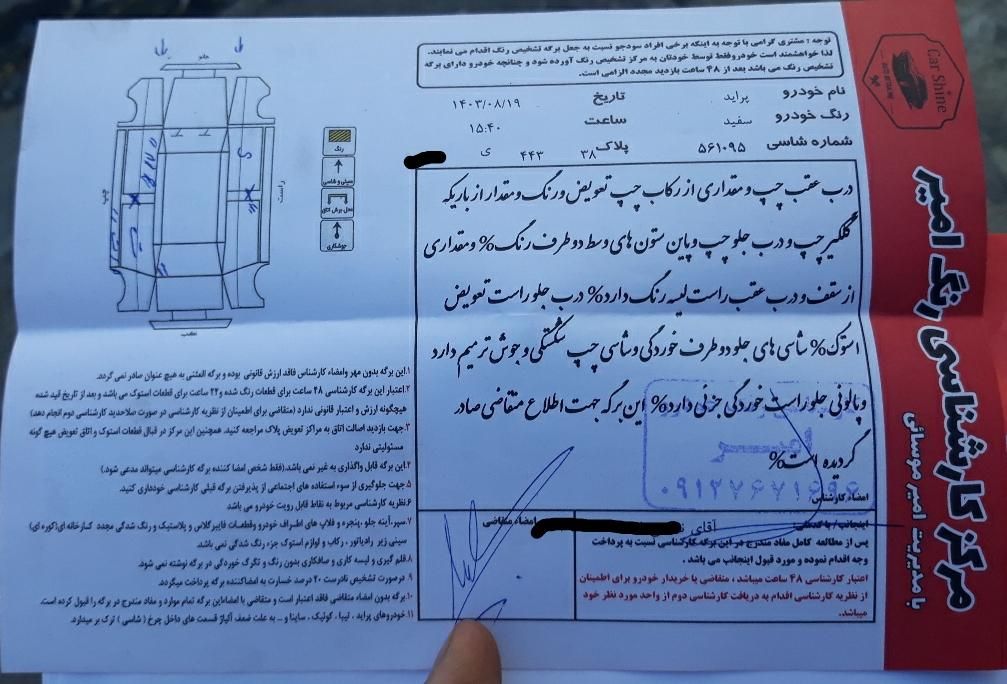 توجه : مشتری گرامی با توجه به اینکه برخی افراد سودجو نسبت به جعل برگه تشخیص رنگ اقدام می نمایند.
لذا خواهشمند است خودرو فقط توسط خودتان به مرکز تشخیص رنگ آورده شود و چنانچه خودرو دارای برگه
تشخیص رنگ می باشد بعد از ۴۸ ساعت بازدید مجدد الزامی است.
Car Shine
نام خودرو پراید تاریخ ۱۴۰۳/۰۸/۱۹
رنگ خودرو سفید ساعت ۱۵:۴۰
شماره شاسی ۵۶۱۰۹۵ پلاک ۳۸ ۴۴۳ ی
درب عقب چپ و مقداری از رکاب چپ تعویض و رنگ و مقدار از باریکه
گلگیر چپ و درب جلو چپ و پاین ستون های وسط دو طرف رنگ% و مقداری
از سقف و درب عقب راست لیسه رنگ دارد% درب جلو راست تعویض
استوک% شاسی های جلو دو طرف خوردگی و شاسی چپ شکستگی و جوش ترمیم دارد
و پالونی جلو راست خوردگی جزئی دارد% این برگه جهت اطلاع متقاضی صادر
گردیده است%
امیر
امضاء کارشناس
اینجانب / با کدملی: آقای
امضاء متقاضی
پس از مطالعه کامل مفاد مندرج در این برگه کارشناسی نسبت به پرداخت
وجه اقدام نموده و مورد قبول اینجانب می باشد .
اعتبار کارشناسی ۴۸ ساعت میباشد ، متقاضی یا خریدار خودرو برای اطمینان
از نظریه کارشناسی اقدام به دریافت کارشناسی دوم از واحد مورد نظر خود
میباشد.
جلو
راست
چپ
عقب
رنگ
سینی و شاسی
محل برش اتاق
جوشکاری
۱.این برگه بدون مهر وامضاء کارشناس فاقد ارزش قانونی بوده و برگه المثنی به هیچ عنوان صادر نمی گردد.
۲.اعتبار این برگه کارشناسی ۴۸ ساعت برای قطعات رنگ شده و ۲۴ ساعت برای قطعات استوک می باشد و بعد از تاریخ قید شده
هیچگونه ارزش و اعتبار قانونی ندارد (متقاضی برای اطمینان از نظریه کارشناسی در صورت صلاحدید کارشناسی دوم انجام دهد)
۳.جهت بازدید اصالت اتاق به مراکز تعویض پلاک مراجعه کنید. همچنین این مرکز در قبال قطعات استوک و اتاق تعویض هیچ گونه
مسئولیتی ندارد
۴.این برگه قابل واگذاری به غیر نمی باشد.(فقط شخص امضا کننده برگه کارشناسی میتواند مدعی شود.)
۵.جهت جلوگیری از سوء استفاده های اجتماعی از پذیرفتن برگه قبلی کارشناسی خودداری کنید.
۶.نظریه کارشناسی مربوط به نقاط قابل رویت خودرو می باشد
۷.سپر،آینه جلو ،پنجره و فلاپ های اطراف خودرو وقطعات فایبرگلاس و پلاستیک و رنگ شدگی مجدد کارخانه ای(کوره ای)
سینی زیر رادیاتور ، رکاب و لوازم استوک جزء رنگ شدگی نمی باشد
۸.قلم گیری و لیسه کاری و صافکاری بدون رنگ و تگرگ خوردگی در برگه نوشته نمی شود.
۹.در صورت تشخیص نادرست ۲۰ درصد خسارت به امضاکننده برگه پرداخت میگردد.
۱۰.برگه بدون امضاء متقاضی فاقد اعتبار است و متقاضی با امضاء این برگه تمام موارد و مفاد مندرج در برگه را قبول کرده است.
۱۱.خودروهای پراید ، تیبا ، کوئیک ، ساینا و... به علت ضعف آلیاژ قسمت های داخل چرخ ( شاسی ) ترک بر میدارد.
مرکز کارشناسی رنگ امیر
با مدیریت امیر موسائی